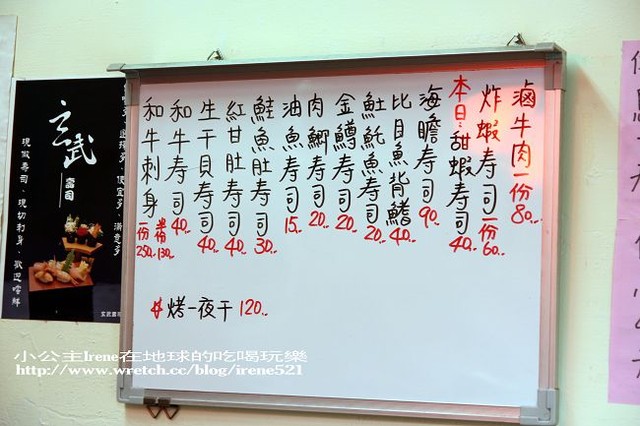 滷牛肉一份80..
炸蝦壽司一份60..
本日:甜蝦壽司40..
海膽壽司90..
比目魚背鰭40..
魠魠魚壽司20..
金鱒壽司20..
肉鯽壽司20..
油魚壽司15..
鮭魚肚壽司30..
紅甘肚壽司40..
生干貝壽司40..
和牛壽司40..
和牛刺身半份130..
一份250..
烤一夜干120..
玄武
壽司
現做壽司、現切刺身、歡迎嚐鮮
便宜多、滿意多
小公主Irene在地球的吃喝玩樂
http://www.wretch.cc/blog/irene521